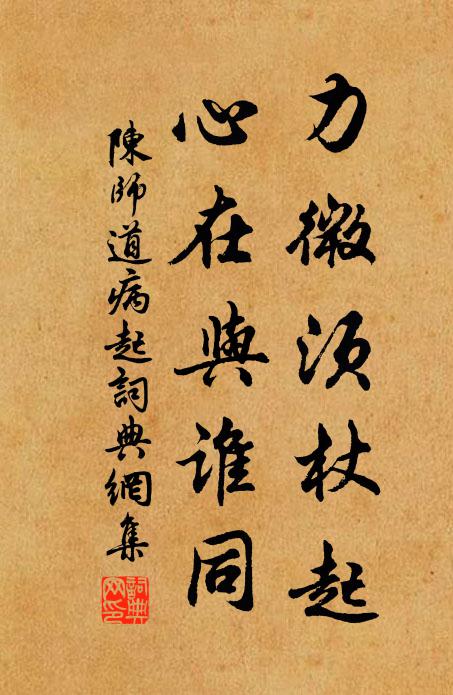 力微須杖起
心在與誰同
陳師道病起詞典網集
詞典網印